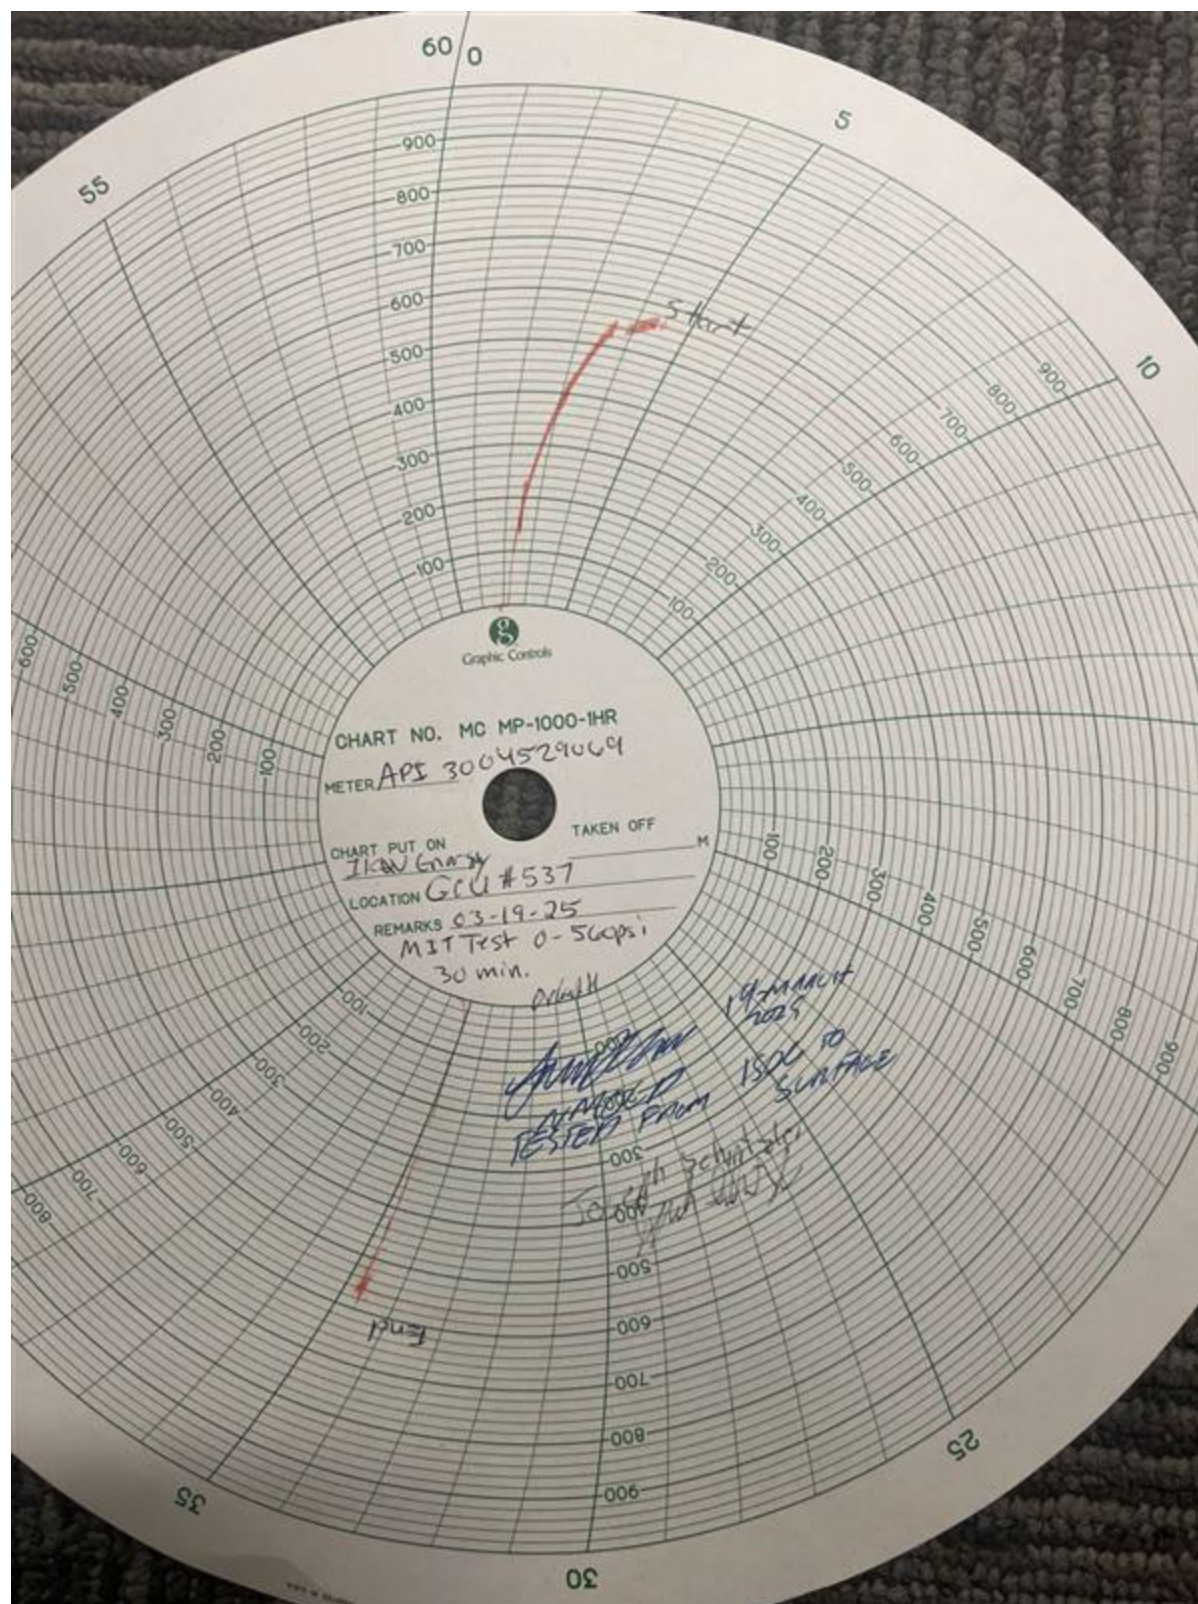 60 0
5
10
25
30
35
55
900
800
700
600
500
400
300
200
100
900
800
700
600
500
400
300
200
100
100
200
300
400
500
600
700
800
900
300
400
500
600
700
800
900
100
200
300
400
500
600
700
800
600
500
400
300
200
100
Start
g
Graphic Controls
CHART NO. MC MP-1000-1HR
METER API 3004529069
CHART PUT ON TAKEN OFF
M
IKAV Energy
LOCATION GCU #537
REMARKS 03-19-25
MIT Test 0-560psi
30 min.
19-MARCH
2025
NMOCD
TESTED FROM 1500 TO
SURFACE
Joseph
End